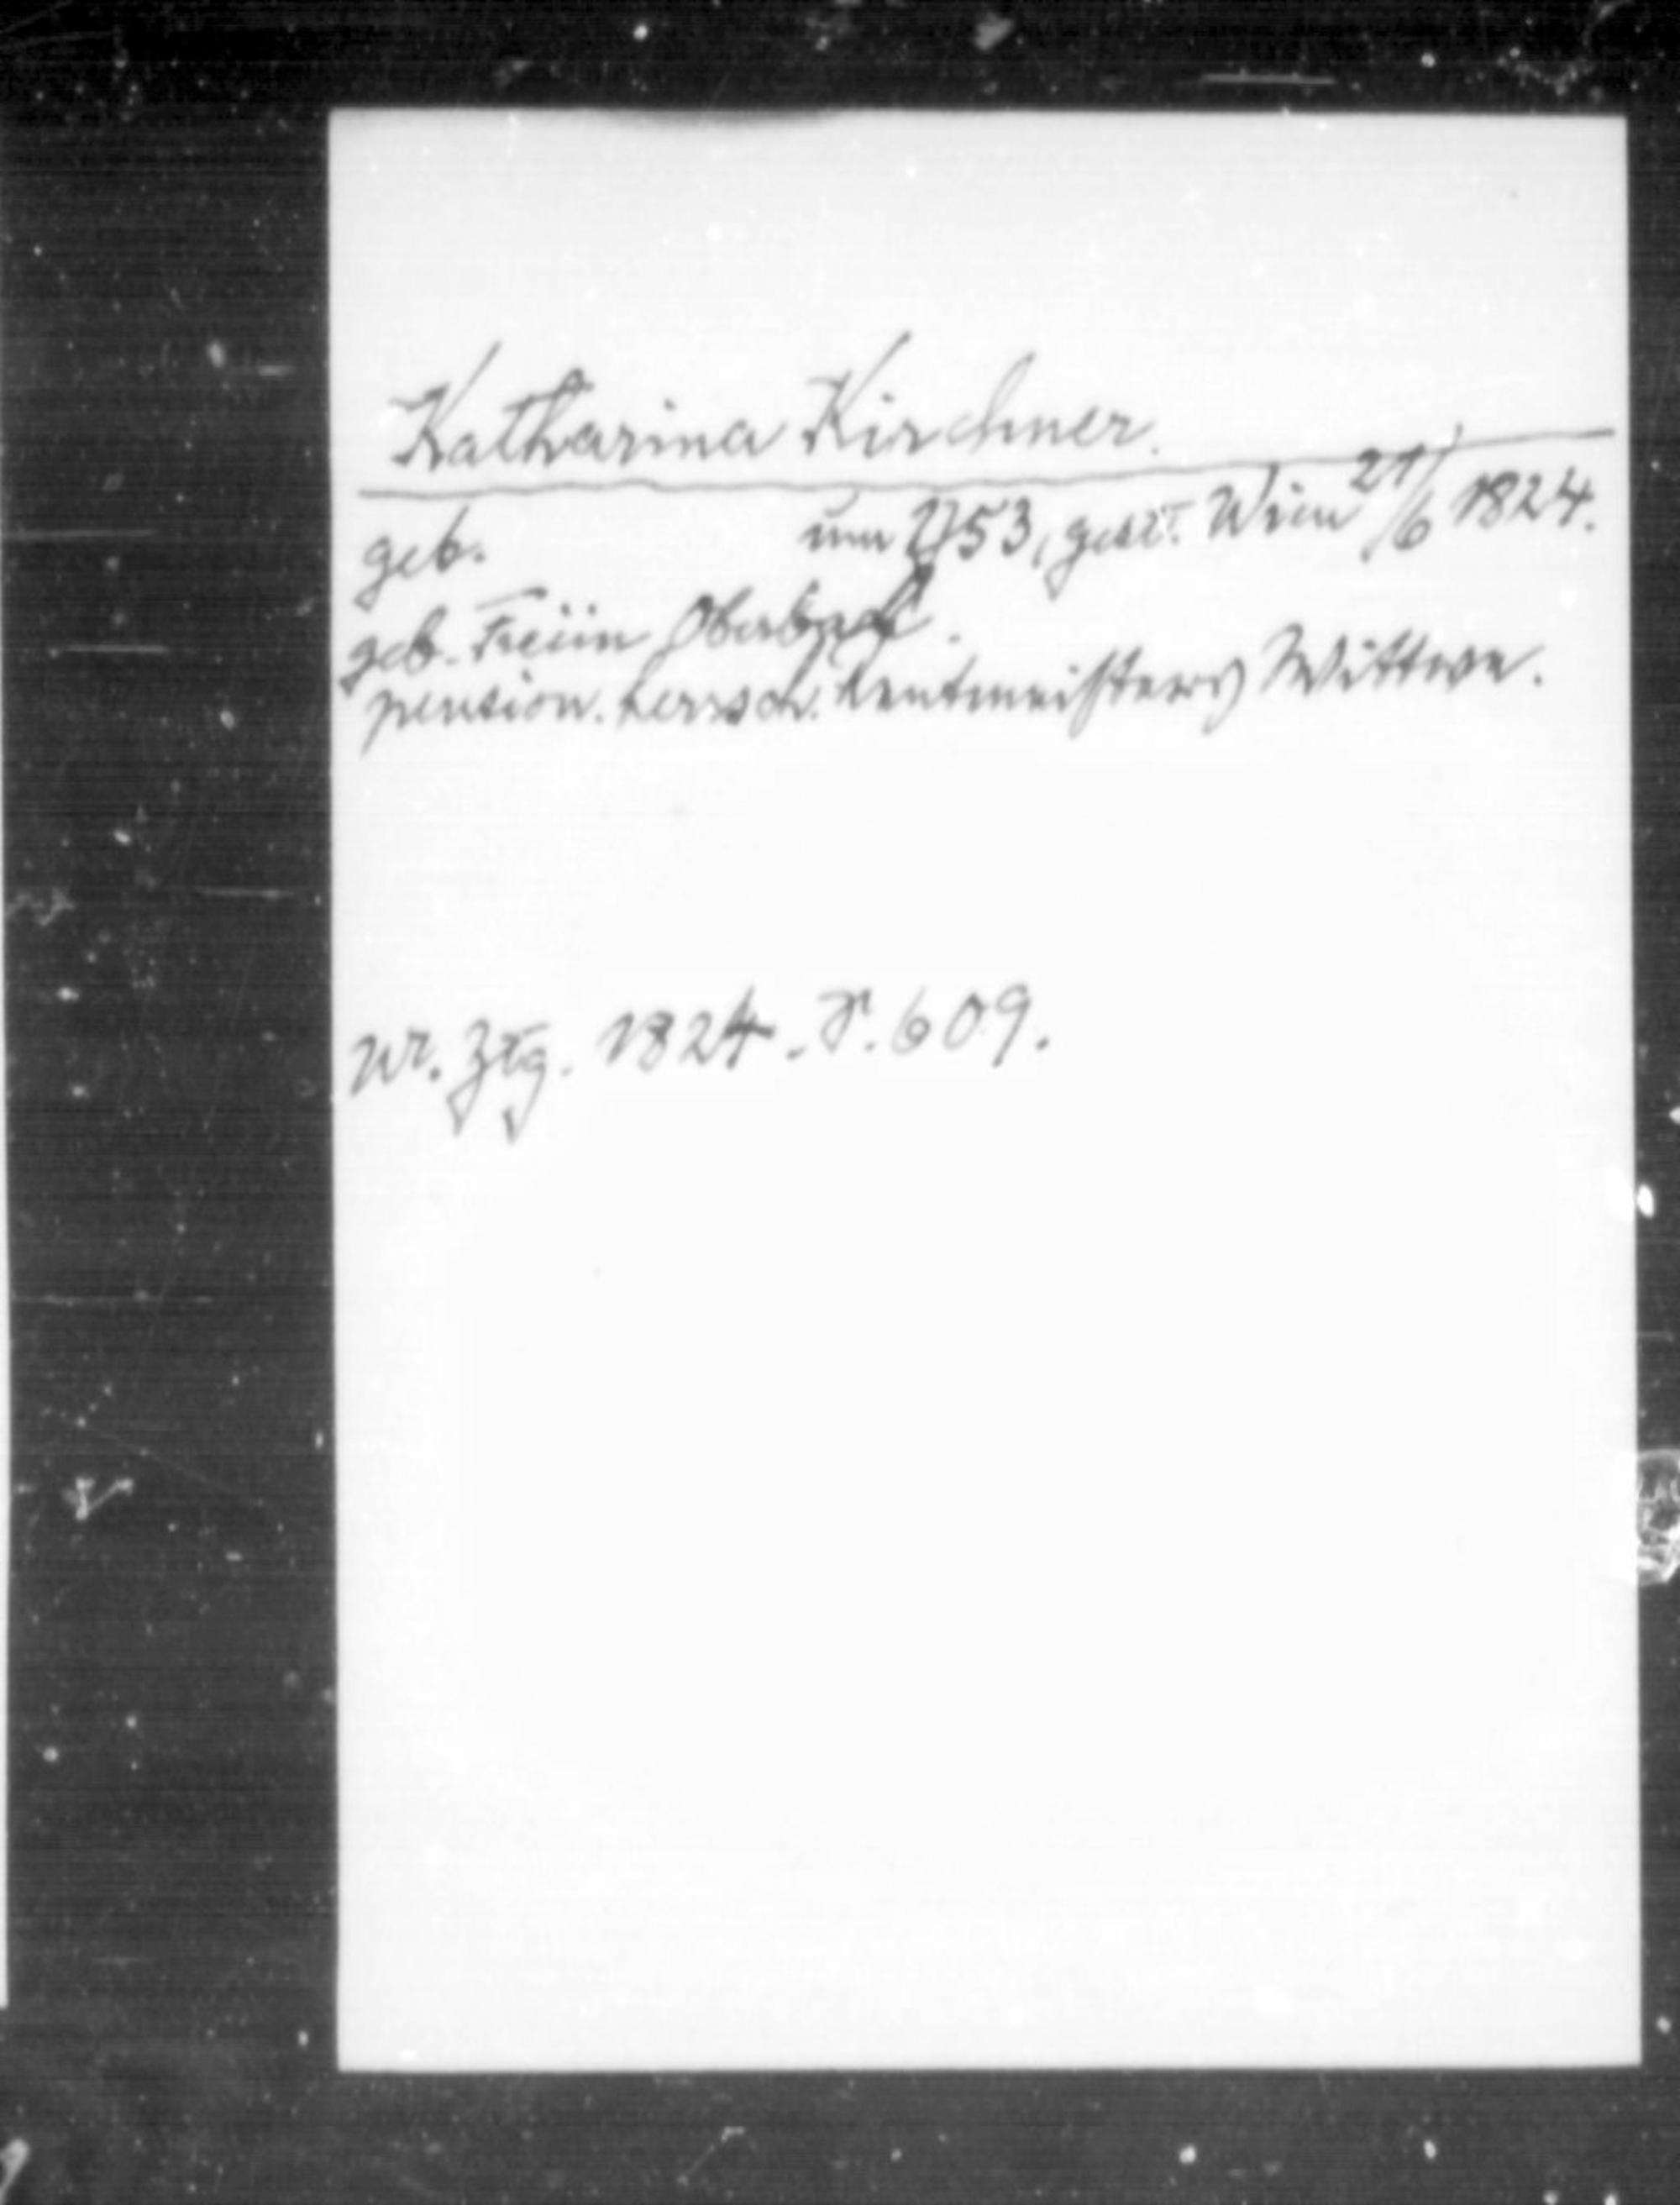 Katharina Kirchner.
geb. um 1753, gest. Wien 21/6 1824.
geb. Freiin
pension. herrsch. Rentmeisters Wittwe.
Wr. Ztg. 1824. S. 609.